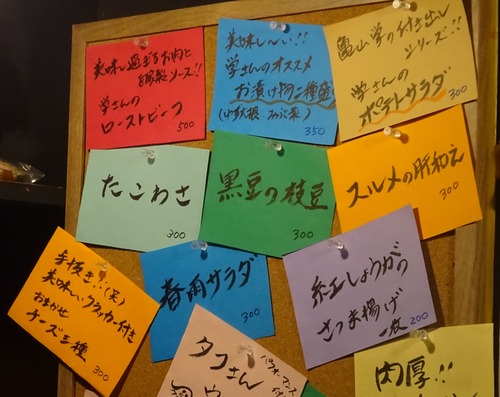 美味し過ぎるお肉と
自家製ソース!!
学さんの
ローストビーフ
500
美味しーい!!
学さんのオススメ
お漬け物二種盛
350
亀山学の付き出し
シリーズ!!
学さんの
ポテトサラダ
300
たこわさ
300
黒豆の枝豆
300
スルメの肝和え
300
手抜き!!(笑)
美味しいクラッカー付き
おまかせ
チーズ三種
300
春雨サラダ
300
紅しょうがの
さつま揚げ
一枚 200
タコさん
パフォーマンス
肉厚!!